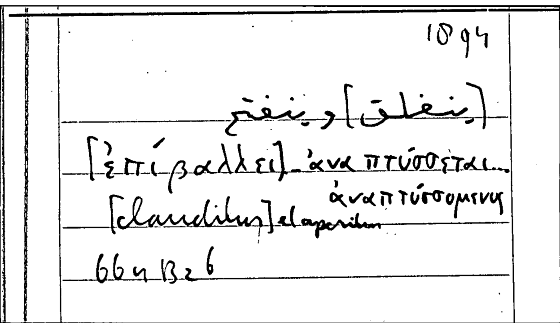 1894
[ينغلق] وينفتح
[ἐπιβάλλει] ἀναπτύσσεται...
ἀναπτύσσομενης
[clauditur] et aperitur
664 B26